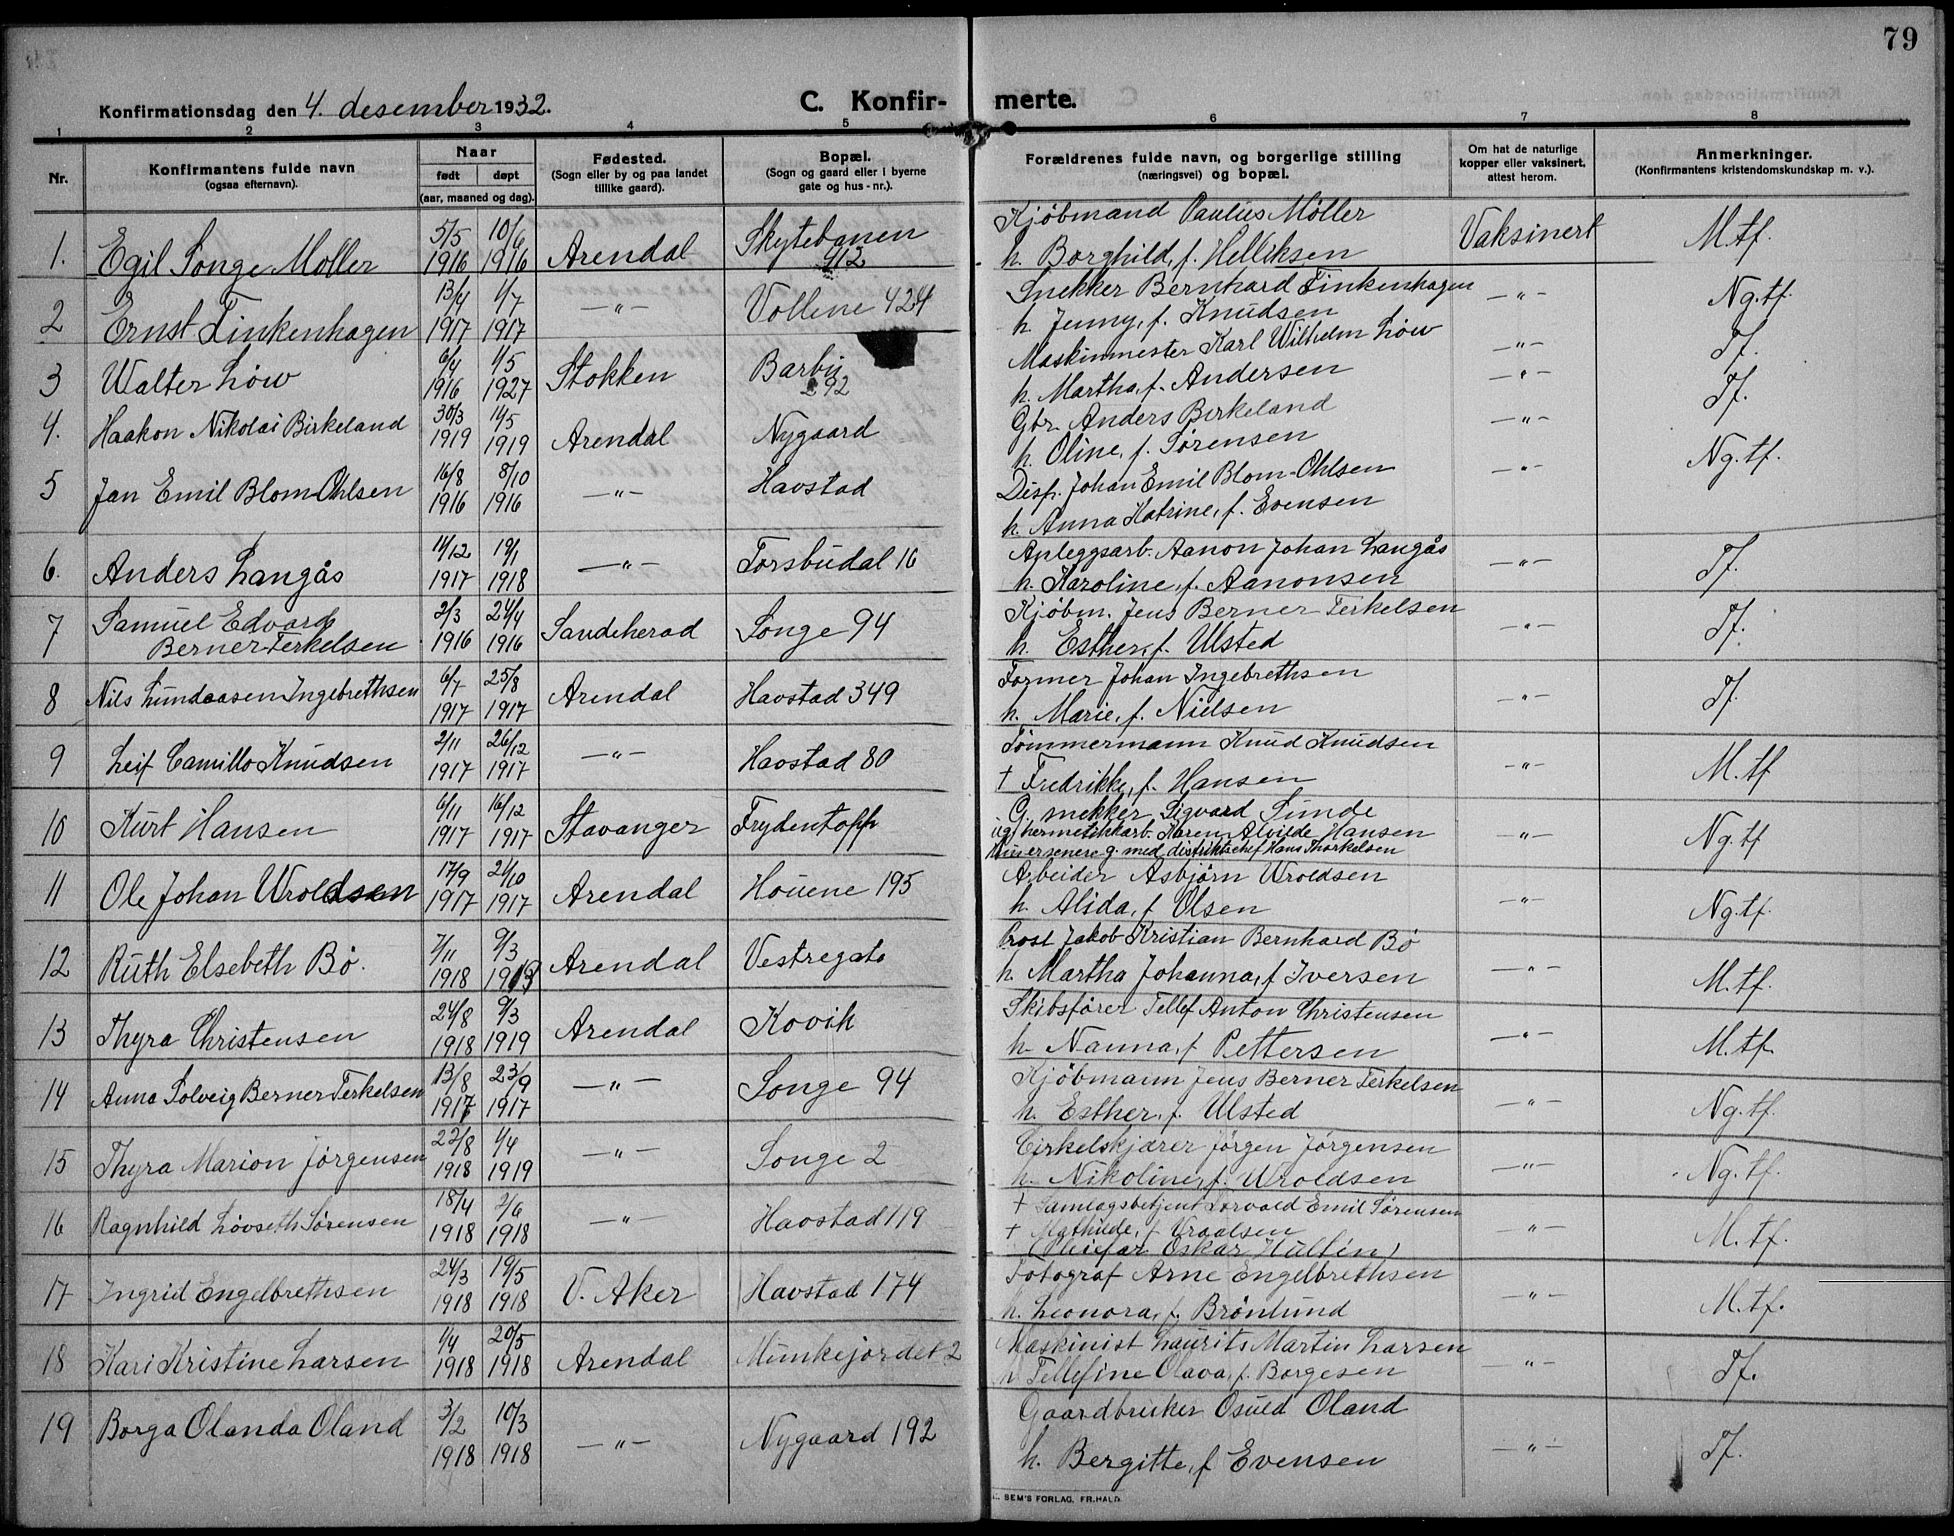 79
Konfirmationsdag den 4. desember 1932.
C. Konfir- merte.
1 2 3 4 5 6 7 8
Nr.
Konfirmantens fulde navn
(ogsaa efternavn).
Naar
født døpt
(aar, maaned og dag).
Fødested.
(Sogn eller by og paa landet
tillike gaard).
Bopæl.
(Sogn og gaard eller i byerne
gate og hus-nr.).
Forældrenes fulde navn, og borgerlige stilling
(næringsvei) og bopæl.
Om hat de naturlige
kopper eller vaksinert,
attest herom.
Anmerkninger.
(Konfirmantens kristendomskundskap m. v.).
1. Egil Songe Møller 5/5 1916 10/6 1916 Arendal Skytebanen 912
Kjøbmand Paulus Møller
h. Borghild, f. Helliksen Vaksinert M.tf.
2 Ernst Finkenhagen 13/4 1917 1/7 1917 —"— Vollene 424
Snekker Bernhard Finkenhagen
h. Jenny, f. Knudsen —"— Ng.tf.
3 Walter Løw 6/4 1916 1/5 1927 Stokken Barbu 292
Maskinmester Karl Wilhelm Løw —"— Tf.
h. Martha, f. Andersen —"—
4. Haakon Nikolai Birkeland 30/3 1919 11/5 1919 Arendal Nygaard
Gbr. Anders Birkeland —"— Tf.
h. Oline, f. Sørensen
5 Jan Emil Blom-Ohlsen 16/8 1916 8/10 1916 —"— Havstad
Disp. Johan Emil Blom-Ohlsen —"— Ng.tf.
h. Anna Katrine, f. Evensen
6. Anders Langås 14/12 1917 19/1 1918 —"— Torsbudal 16
Apleggsarb. Aanon Johan Langås
h. Karoline, f. Aanonsen —"— Tf.
7 Samuel Edvard
Berner-Terkelsen 2/3 1916 24/4 1916 Sandeherad Songe 94
Kjøbm. Jens Berner-Terkelsen
h. Esther, f. Ulsted —"— Tf.
8 Nils Lundaasen Ingebrethsen 6/7 1917 25/8 1917 Arendal Havstad 349
Former Johan Ingebrethsen
h. Marie, f. Nielsen —"— Tf.
9 Leif Camillo Knudsen 2/11 1917 26/12 1917 —"— Havstad 80
Tømmermann Knud Knudsen
† Fredrikke, f. Hansen —"— M.tf
10 Kurt Hansen 6/11 1917 16/12 1917 Stavanger Frydentopp
G. snekker Sigvard Sunde
ug. hermetikkarb. Karen Alvilde Hansen
Hun er senere g. med distriktschef Hans Thorkelsen —"— Ng.tf
11 Ole Johan Uroldsen 17/9 1917 21/10 1917 Arendal Houene 195
Arbeider Asbjørn Uroldsen
h. Alida, f. Olsen —"— Ng.tf.
12 Ruth Elsebeth Bø. 7/11 1918 9/3 1919 Arendal Vestregate
Prost Jakob Kristian Bernhard Bø
h. Martha Johanna, f Iversen —"— M.tf.
13 Thyra Christensen 24/8 1918 9/3 1919 Arendal Kovik
Skibsfører Tellef Anton Christensen
h. Nanna, f Pettersen —"— M.tf.
14 Anna Solveig Berner Terkelsen 13/8 1917 23/9 1917 —"— Songe 94
Kjøbmann Jens Berner Terkelsen
h. Esther, f. Ulsted —"— Ng.tf.
15 Thyra Marion Jørgensen 22/8 1918 1/4 1919 —"— Songe 2
Cirkelskjærer Jørgen Jørgensen
h. Nikoline, f. Uroldsen —"— Ng.tf.
16 Ragnhild Løvseth Sørensen 18/4 1918 2/6 1918 —"— Havstad 119
† Samlagsbetjent Torvald Emil Sørensen
† Mathilde, f Vraalsen
(Pleiefar Oskar Hultén) —"— M.tf.
17 Ingrid Engelbrethsen 24/3 1918 19/5 1918 V. Aker Havstad 174
Fotograf Arne Engelbrethsen
h. Leonora, f. Brønlund —"— M.tf.
18 Kari Kristine Larsen 1/4 1918 20/5 1918 Arendal Munkejordet 2
Maskinist Laurits Martin Larsen
h Tellefine Olava, f. Borgesen —"— Tf.
19 Borga Olanda Oland 3/2 1918 10/3 1918 —"— Nygaard 192
Gaardbruker Osuld Oland
h. Bergitte, f Evensen —"— Tf.
SEM'S FORLAG. FR.HALD